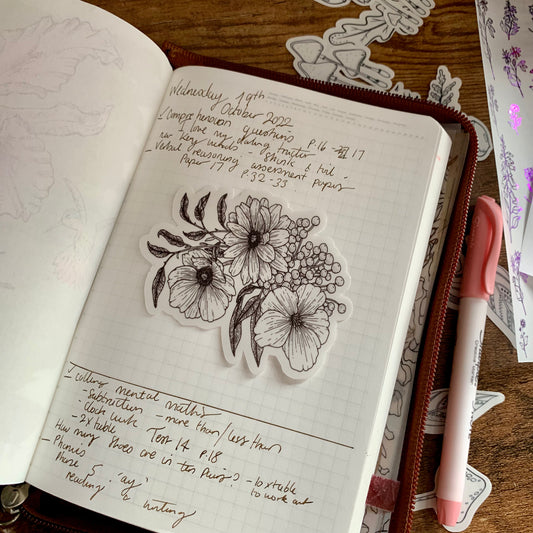 Wednesday 19th
October 2022
Comprehension questions P.16 - 17
I love my darling tractor
new key words - shrink & tint.
- Verbal reasoning assessment papers
Paper 17 P.32-33
Collins mental maths
- Subtraction - more than/less than
- Clock work
- 2x table Test 14 P.18
How many shoes are in ten pairs? - 10x table
to work out
- Phonics
Phase 5 'ay'
reading & writing